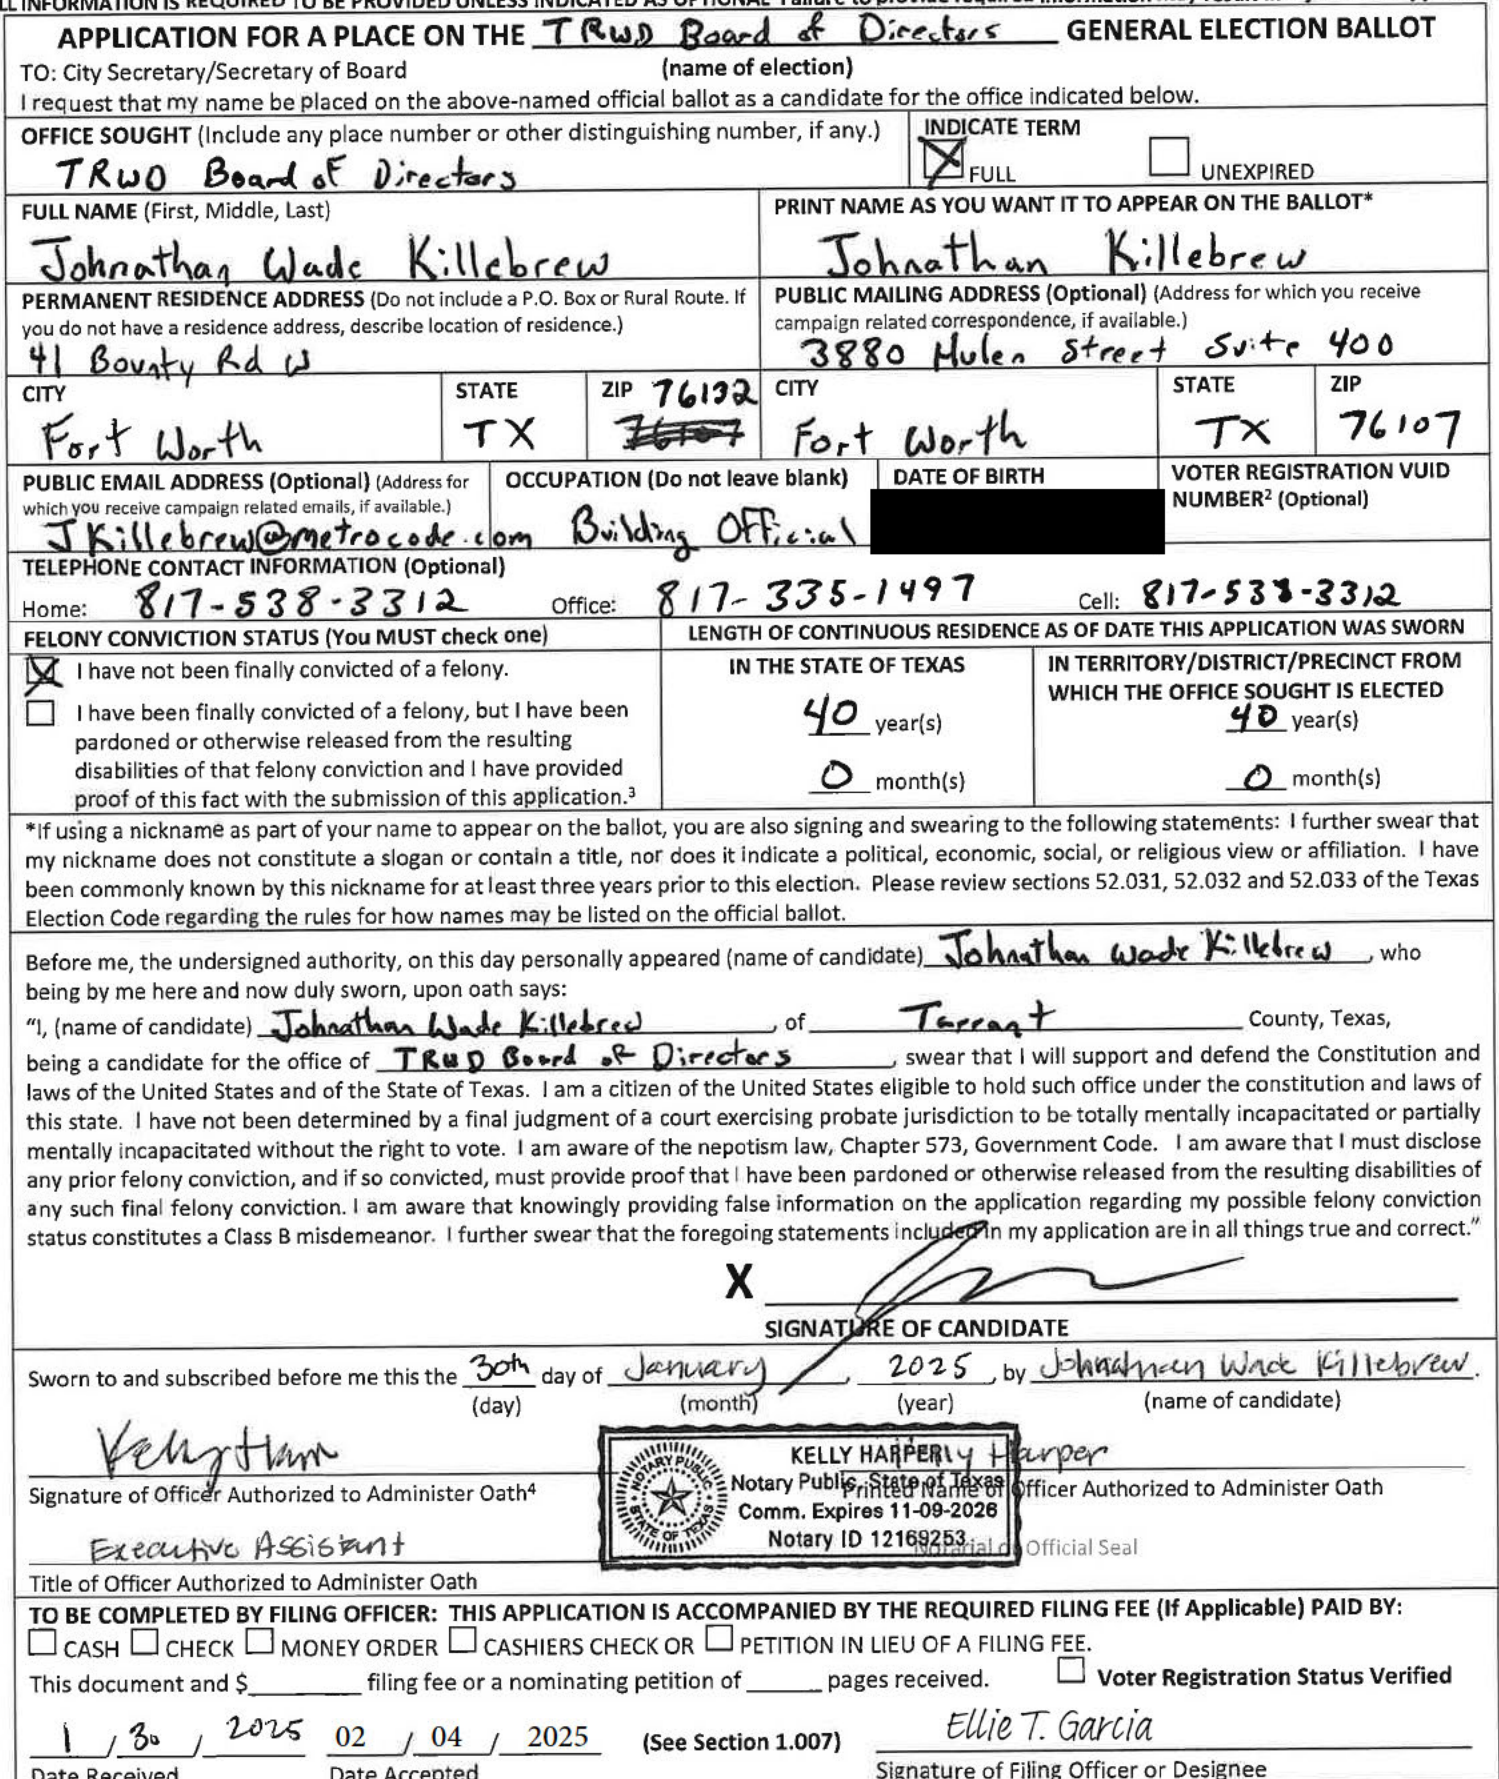 LL INFORMATION IS REQUIRED TO BE PROVIDED UNLESS INDICATED AS OPTIONAL
APPLICATION FOR A PLACE ON THE TRWD Board of Directors GENERAL ELECTION BALLOT
TO: City Secretary/Secretary of Board (name of election)
I request that my name be placed on the above-named official ballot as a candidate for the office indicated below.
OFFICE SOUGHT (Include any place number or other distinguishing number, if any.)
TRWD Board of Directors
INDICATE TERM
FULL UNEXPIRED
FULL NAME (First, Middle, Last)
Johnathan Wade Killebrew
PRINT NAME AS YOU WANT IT TO APPEAR ON THE BALLOT*
Johnathan Killebrew
PERMANENT RESIDENCE ADDRESS (Do not include a P.O. Box or Rural Route. If
you do not have a residence address, describe location of residence.)
41 Bounty Rd W
PUBLIC MAILING ADDRESS (Optional) (Address for which you receive
campaign related correspondence, if available.)
3880 Hulen Street Suite 400
CITY
Fort Worth
STATE
TX
ZIP 76132
76107
CITY
Fort Worth
STATE
TX
ZIP
76107
PUBLIC EMAIL ADDRESS (Optional) (Address for
which you receive campaign related emails, if available.)
JKillebrew@metrocode.com
OCCUPATION (Do not leave blank)
Building Official
DATE OF BIRTH
VOTER REGISTRATION VUID
NUMBER² (Optional)
TELEPHONE CONTACT INFORMATION (Optional)
Home: 817-538-3312 Office: 817-335-1497 Cell: 817-538-3312
FELONY CONVICTION STATUS (You MUST check one)
I have not been finally convicted of a felony.
I have been finally convicted of a felony, but I have been
pardoned or otherwise released from the resulting
disabilities of that felony conviction and I have provided
proof of this fact with the submission of this application.³
LENGTH OF CONTINUOUS RESIDENCE AS OF DATE THIS APPLICATION WAS SWORN
IN THE STATE OF TEXAS
40 year(s)
0 month(s)
IN TERRITORY/DISTRICT/PRECINCT FROM
WHICH THE OFFICE SOUGHT IS ELECTED
40 year(s)
0 month(s)
*If using a nickname as part of your name to appear on the ballot, you are also signing and swearing to the following statements: I further swear that
my nickname does not constitute a slogan or contain a title, nor does it indicate a political, economic, social, or religious view or affiliation. I have
been commonly known by this nickname for at least three years prior to this election. Please review sections 52.031, 52.032 and 52.033 of the Texas
Election Code regarding the rules for how names may be listed on the official ballot.
Before me, the undersigned authority, on this day personally appeared (name of candidate) Johnathan Wade Killebrew, who
being by me here and now duly sworn, upon oath says:
"I, (name of candidate) Johnathan Wade Killebrew, of Tarrant County, Texas,
being a candidate for the office of TRWD Board of Directors, swear that I will support and defend the Constitution and
laws of the United States and of the State of Texas. I am a citizen of the United States eligible to hold such office under the constitution and laws of
this state. I have not been determined by a final judgment of a court exercising probate jurisdiction to be totally mentally incapacitated or partially
mentally incapacitated without the right to vote. I am aware of the nepotism law, Chapter 573, Government Code. I am aware that I must disclose
any prior felony conviction, and if so convicted, must provide proof that I have been pardoned or otherwise released from the resulting disabilities of
any such final felony conviction. I am aware that knowingly providing false information on the application regarding my possible felony conviction
status constitutes a Class B misdemeanor. I further swear that the foregoing statements included in my application are in all things true and correct."
X
SIGNATURE OF CANDIDATE
Sworn to and subscribed before me this the 30th day of January, 2025, by Johnathan Wade Killebrew.
(day) (month) (year) (name of candidate)
Signature of Officer Authorized to Administer Oath⁴
KELLY HARPER
Notary Public, State of Texas
Comm. Expires 11-09-2026
Notary ID 12169253
NOTARY PUBLIC
STATE OF TEXAS
Harper
Printed Name of Officer Authorized to Administer Oath
Executive Assistant
Title of Officer Authorized to Administer Oath
Official Seal
TO BE COMPLETED BY FILING OFFICER: THIS APPLICATION IS ACCOMPANIED BY THE REQUIRED FILING FEE (If Applicable) PAID BY:
CASH CHECK MONEY ORDER CASHIERS CHECK OR PETITION IN LIEU OF A FILING FEE.
This document and $ filing fee or a nominating petition of pages received. Voter Registration Status Verified
1 / 30 / 2025 02 / 04 / 2025 (See Section 1.007) Ellie T. Garcia
Date Received Date Accepted Signature of Filing Officer or Designee